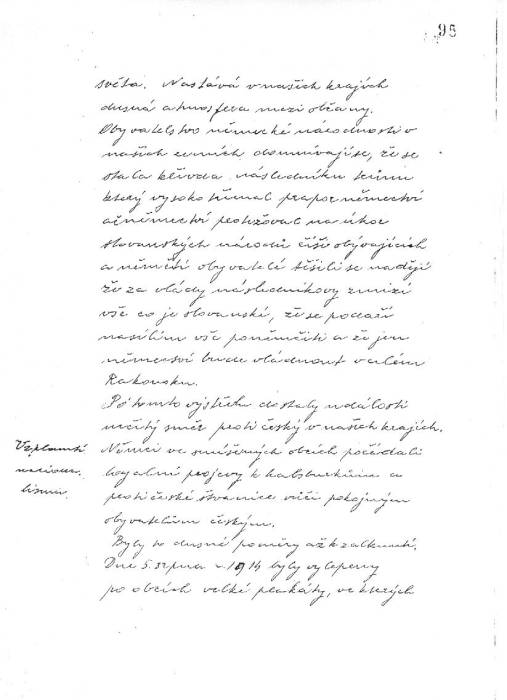 95
světa. Nastává v našich krajích
dusná atmosfera mezi občany.
Obyvatelstvo německé národnosti v
našich zemích domnívají se, že se
stala křivda následníku trůnu
který vysoko třímal prapor němectví
a němectví protěžoval na úkor
slovanských národů říši obývajících
a němčtí obyvatelé těšili se nadějí
že za vlády následníkovy zmizí
vše co je slovanské, že se podaří
násilím vše poněmčiti a že jen
němectví bude vládnout v celém
Rakousku.
Po tomto výstřelu dostaly události
určitý směr proti český v našich krajích.
Vzplanutí
nacionalismu.
Němci ve smíšených obcích pořádali
loyalní projevy k habsburkům a
proti české štvanice vůči pokojným
obyvatelům českým.
Byly to dusné poměry až k zalknutí.
Dne 5. srpna r. 1914 byly vylepeny
po obcích velké plakáty, ve kterých